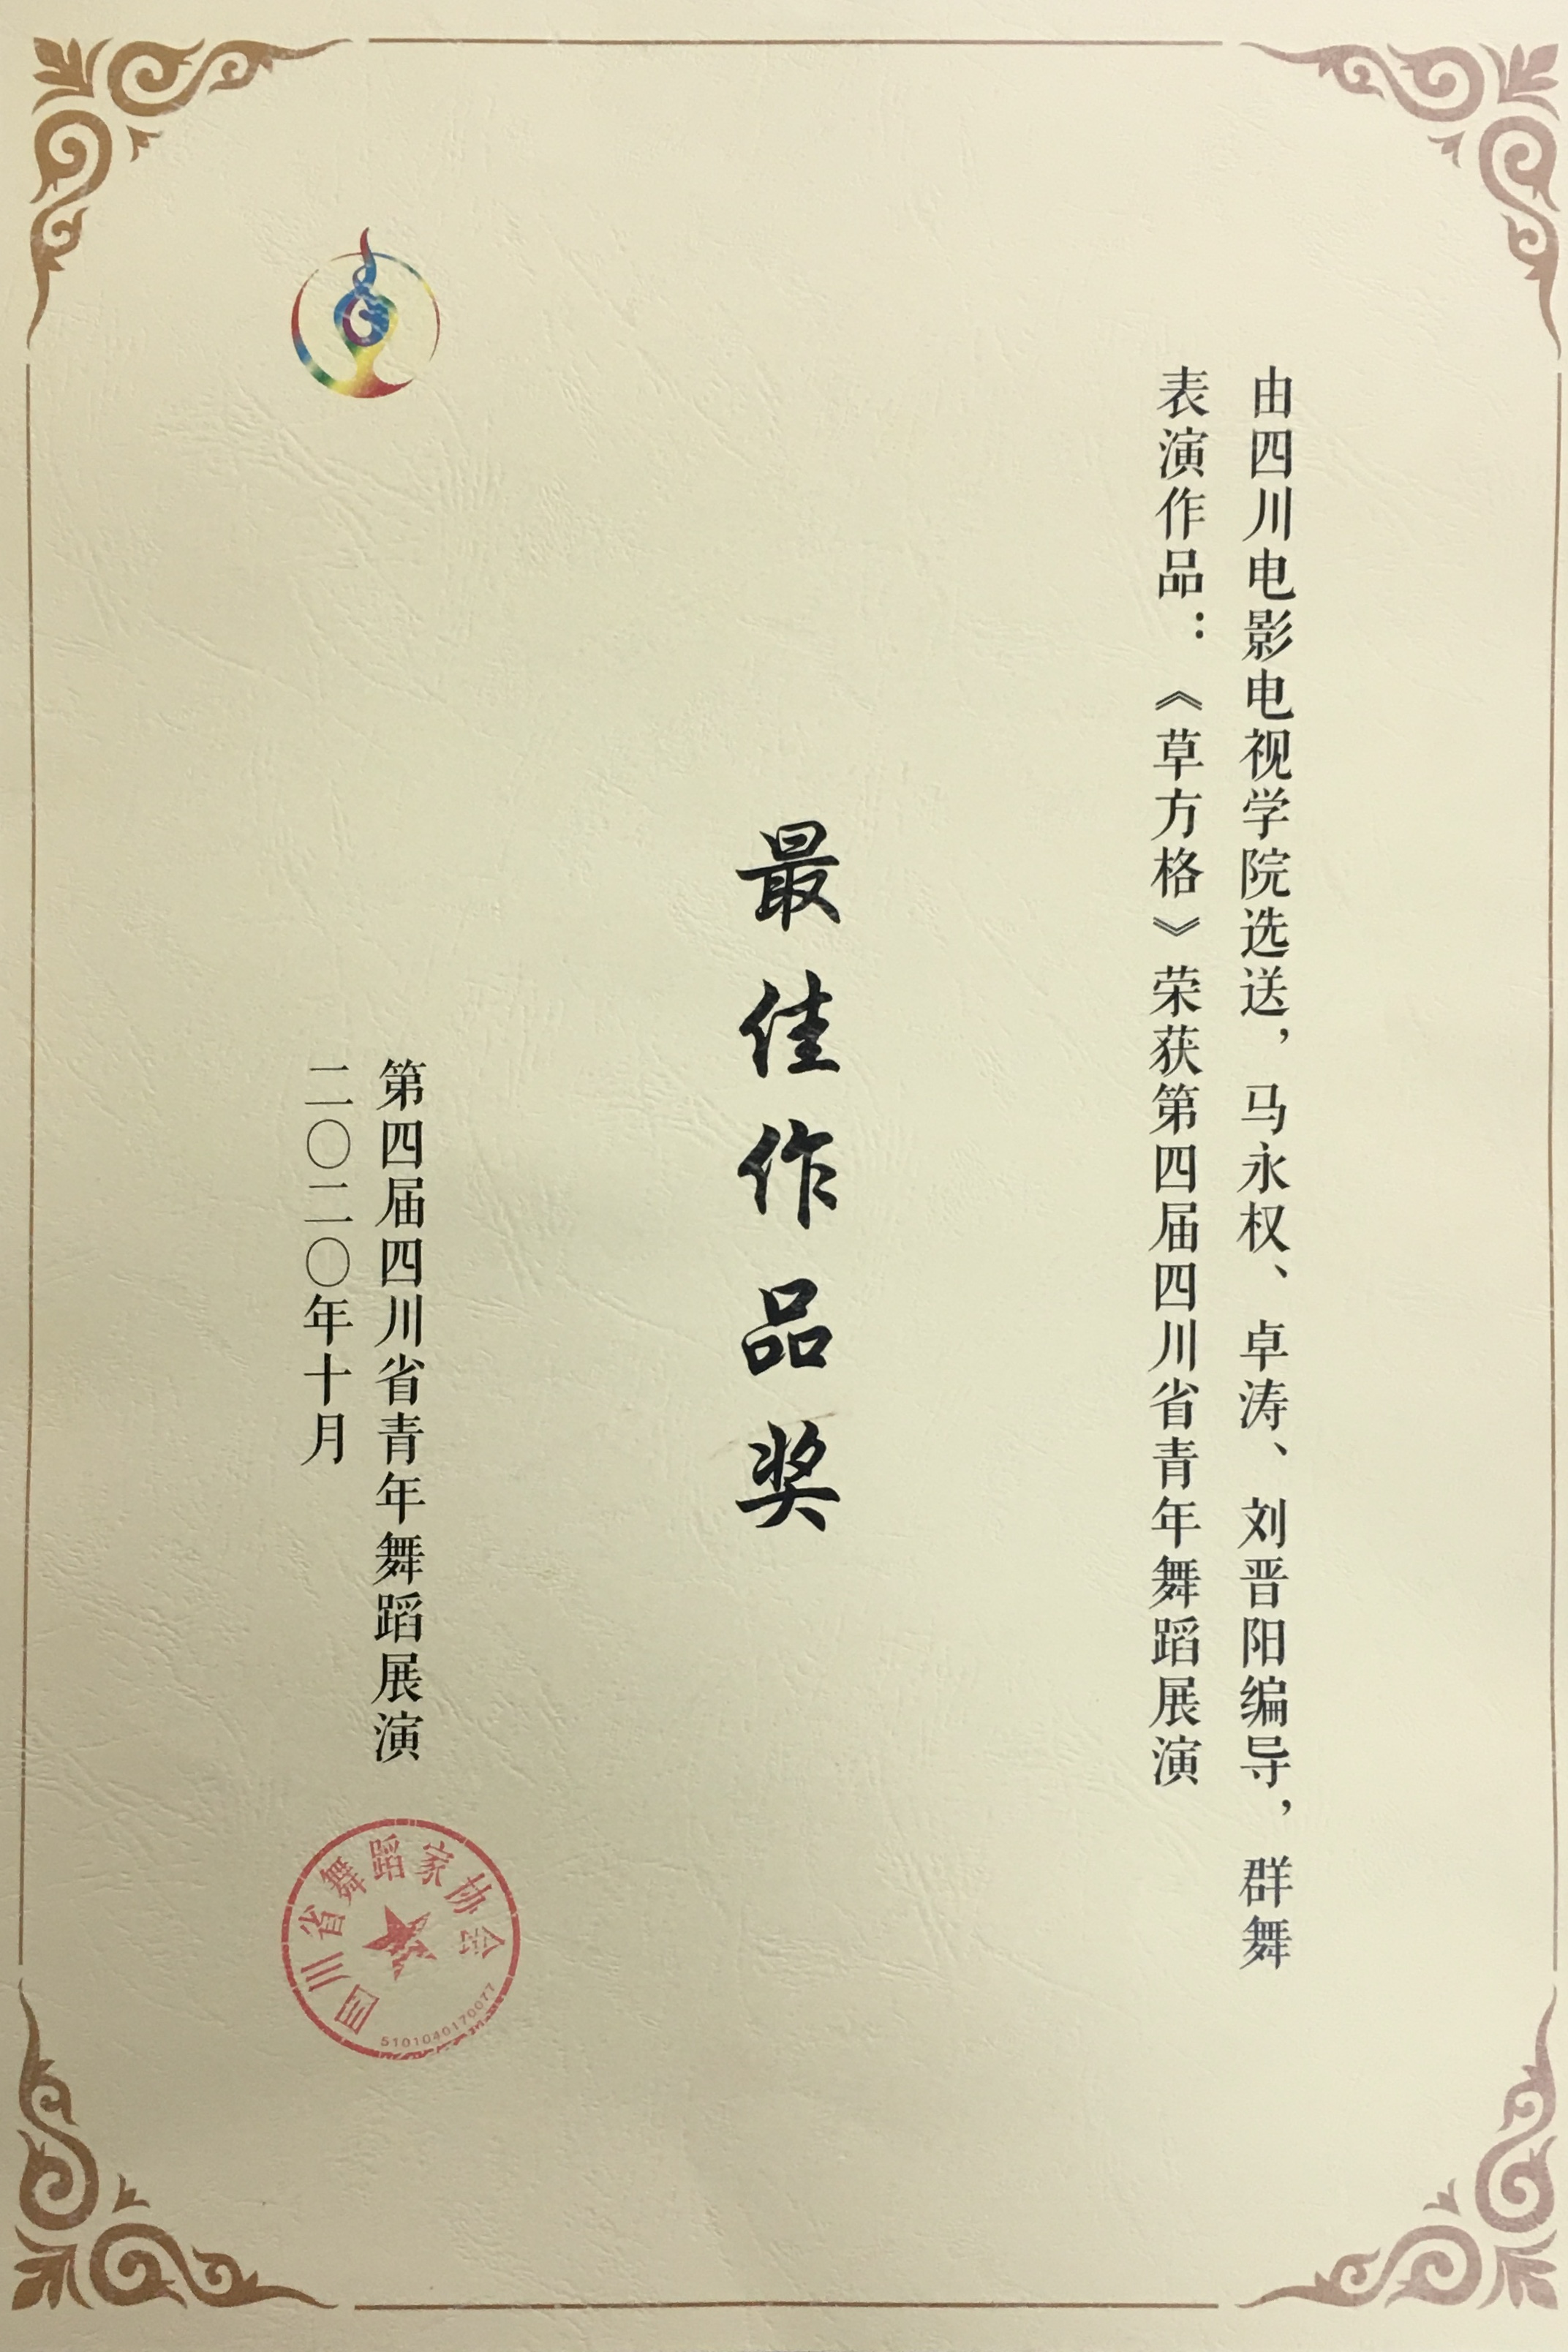 由四川电影电视学院选送，马永权、卓涛、刘晋阳编导，群舞
表演作品：《草方格》荣获第四届四川省青年舞蹈展演
最佳作品奖
第四届四川省青年舞蹈展演
二〇二〇年十月
四川省舞蹈家协会
5101040170077